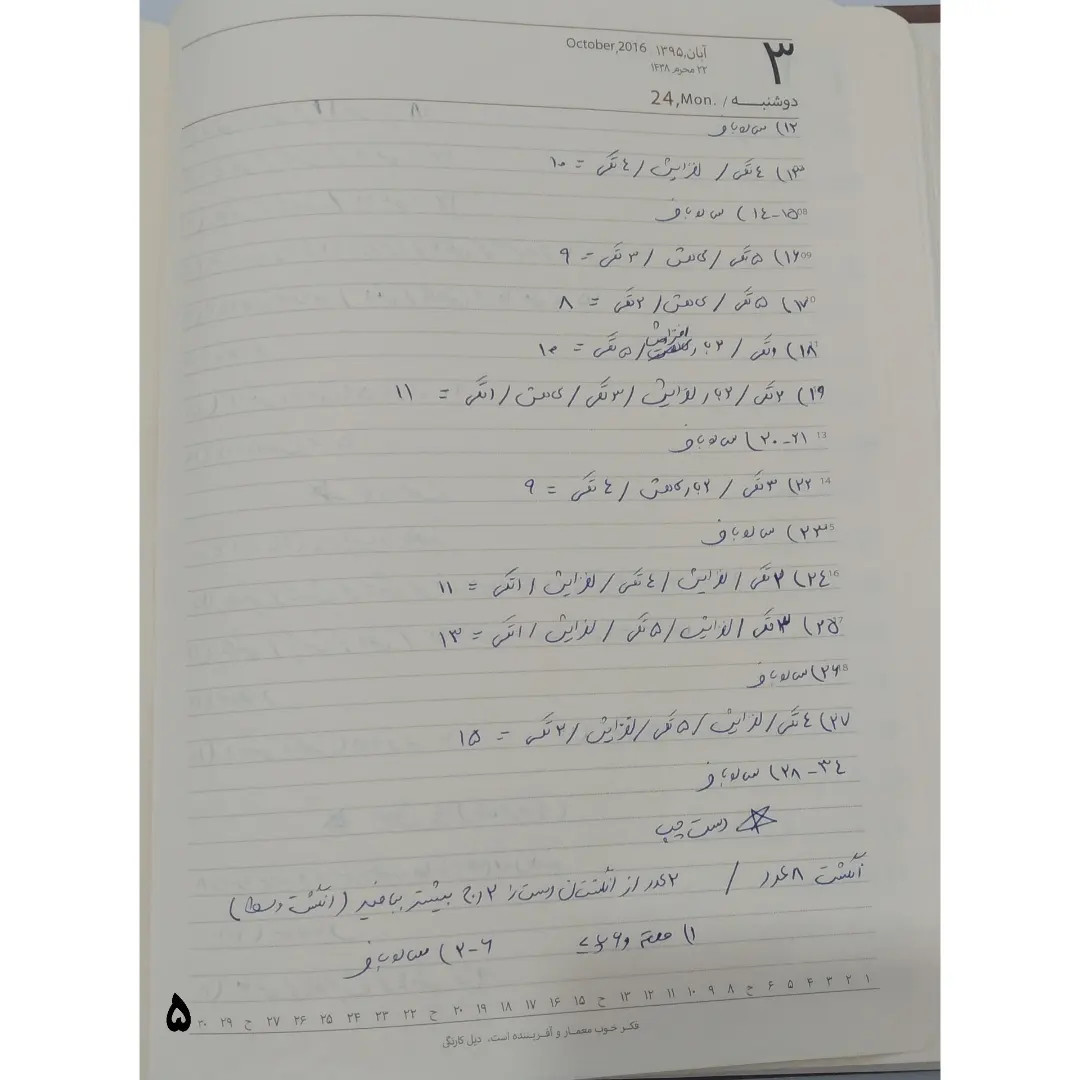 ۳
آبان,۱۳۹۵ October,2016
۲۲ محرم ۱۴۳۸
دوشنبـــه / .24,Mon
۱۲) ساده باف
۱۳) ٤ تکی / افزایش / ٤ تکی = ۱۰
08 ۱٤-۱۵) ساده باف
09 ۱۶) ۵ تکی / کاهش / ۳ تکی = ۹
۱۷) ۵ تکی / کاهش / ۲ تکی = ۸
۱۸) ۱ تکی / ۲ بار افزایش / ۵ تکی = ۱۰
۱۹) ۲ تکی / ۲ بار افزایش / ۳ تکی / کاهش / ۱ تکی = ۱۱
13 ۲۰-۲۱) ساده باف
14 ۲۲) ۳ تکی / ۲ بار کاهش / ٤ تکی = ۹
15 ۲۳) ساده باف
16 ۲٤) ۳ تکی / افزایش / ٤ تکی / افزایش / ۱ تکی = ۱۱
17 ۲۵) ۳ تکی / افزایش / ۵ تکی / افزایش / ۱ تکی = ۱۳
18 ۲۶) ساده باف
۲۷) ٤ تکی / افزایش / ۵ تکی / افزایش / ۲ تکی = ۱۵
۲۸-۳٤) ساده باف
دست چپ
انگشت ۸ عدد / ۲ عدد از انگشتان دست را ۲ رج بیشتر ببافید (انگشت وسط)
۱) حلقه ۶
۲-۶) ساده باف
۱ ۲ ۳ ۴ ۵ ۶ ج ۸ ۹ ۱۰ ۱۱ ۱۲ ۱۳ ج ۱۵ ۱۶ ۱۷ ۱۸ ۱۹ ۲۰ ج ۲۲ ۲۳ ۲۴ ۲۵ ۲۶ ۲۷ ج ۲۹ ۳۰
فکر خوب معمار و آفریننده است. دیل کارنگی
۵